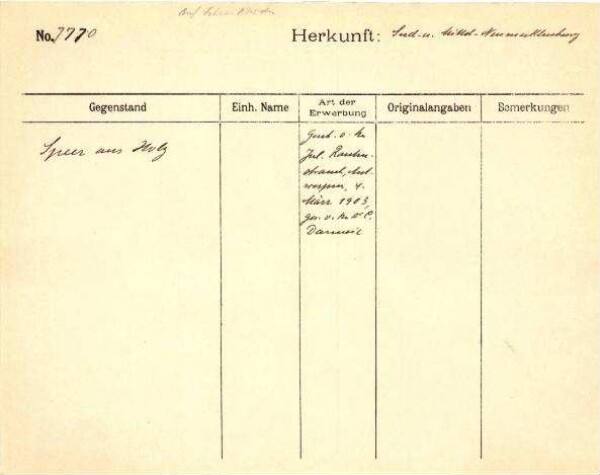 No. 7770
Herkunft: Süd- u. Mittel-Neumecklenburg
Gegenstand
Einh. Name
Art der
Erwerbung
Originalangaben
Bemerkungen
Speer aus Holz
Gesch. v. Hr.
Jul. Rauten-
strauch, Ant-
werpen, 4.
März 1903,
ges. v. Hr. Dr.